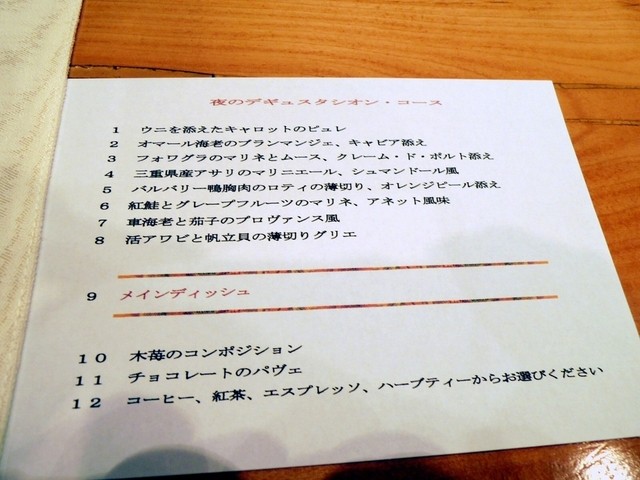 夜のデギュスタシオン・コース
1 ウニを添えたキャロットのピュレ
2 オマール海老のブランマンジェ、キャビア添え
3 フォワグラのマリネとムース、クレーム・ド・ポルト添え
4 三重県産アサリのマリニエール、シュマンドール風
5 バルバリー鴨胸肉のロティの薄切り、オレンジピール添え
6 紅鮭とグレープフルーツのマリネ、アネット風味
7 車海老と茄子のプロヴァンス風
8 活アワビと帆立貝の薄切りグリエ
9 メインディッシュ
10 木苺のコンポジション
11 チョコレートのパヴェ
12 コーヒー、紅茶、エスプレッソ、ハーブティーからお選びください